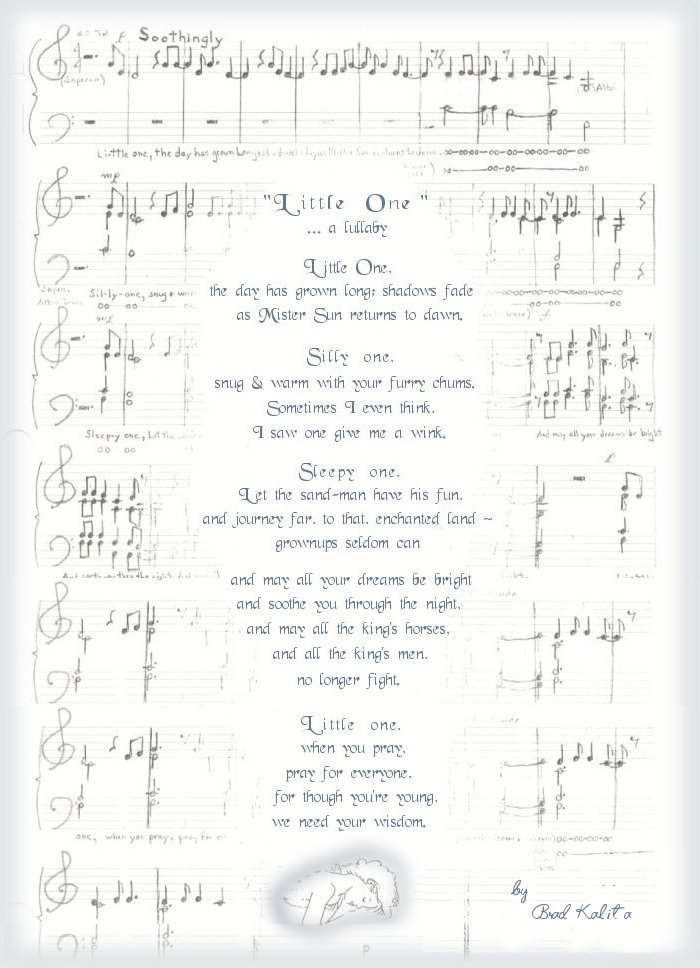 Soothingly
(Soprano)
(Alto
Little one, the day has grown
mp
"Little One"
... a lullaby
Little One,
the day has grown long; shadows fade
as Mister Sun returns to dawn.
Silly-one, snug +
oo oo
mf
Silly one,
snug & warm with your furry chums.
Sometimes I even think,
I saw one give me a wink.
Sleepy one, Let the
oo oo
And may all your dreams be bright
Sleepy one,
Let the sand-man have his fun,
and journey far, to that, enchanted land ~
grownups seldom can
And soothe you thru the night,
and may all your dreams be bright
and soothe you through the night,
and may all the king's horses,
and all the king's men,
no longer fight.
Little one,
when you pray,
pray for everyone,
for though you're young,
we need your wisdom.
one, when you pray, pray for
by
Brad Kalita